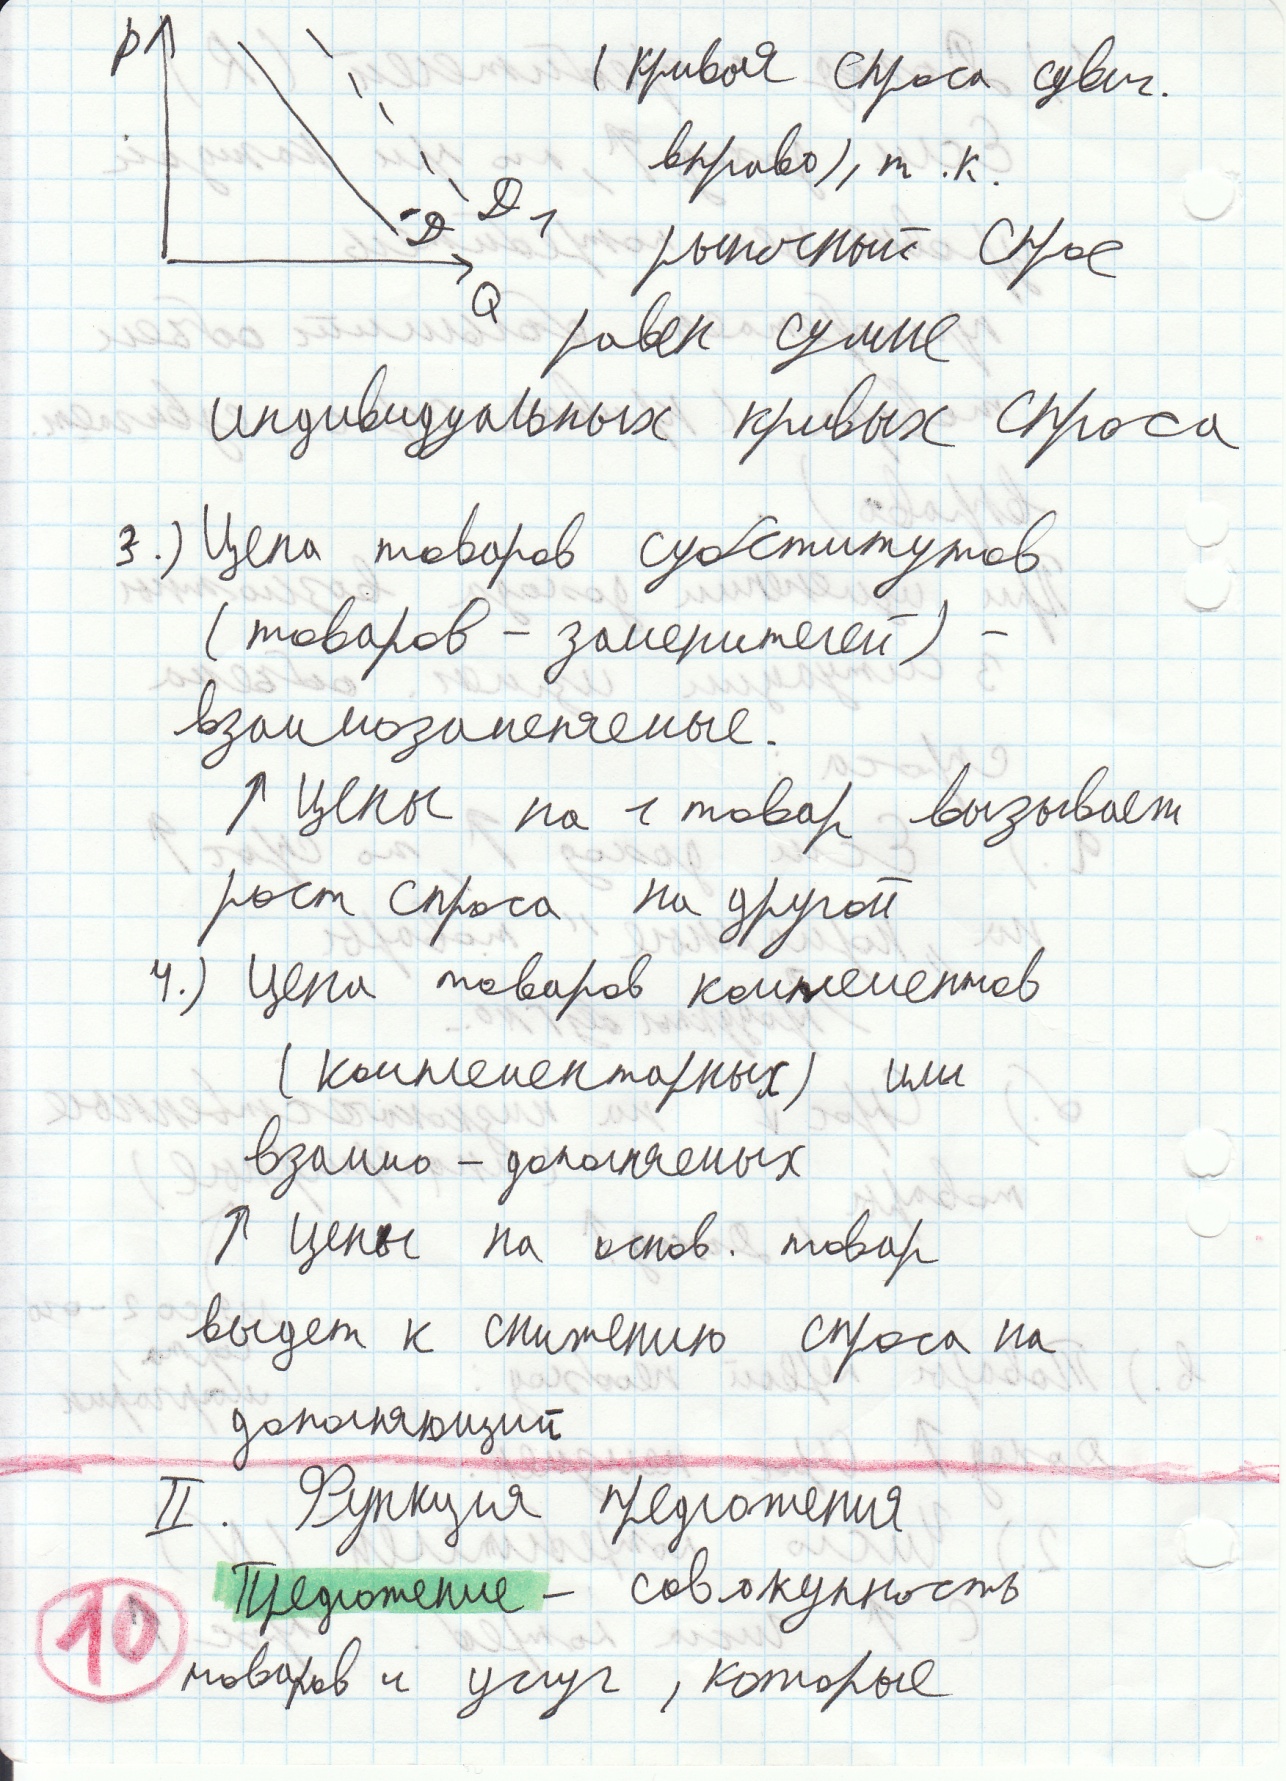 P
(кривая спроса сдвиг.
вправо), т.к.
D D1
рыночный спрос
Q
равен сумме
индивидуальных кривых спроса
3.) Цена товаров субститутов
(товаров - заменителей) -
взаимозаменяемые.
↑ Цены на 1 товар вызывает
рост спроса на другой
4.) Цена товаров комплементов
(комплементарных) или
взаимо - дополняемых
↑ Цены на основ. товар
выдет к снижению спроса на
дополняющий
II. Функция предложения
Предложение - совокупность
10
товаров и услуг, которые